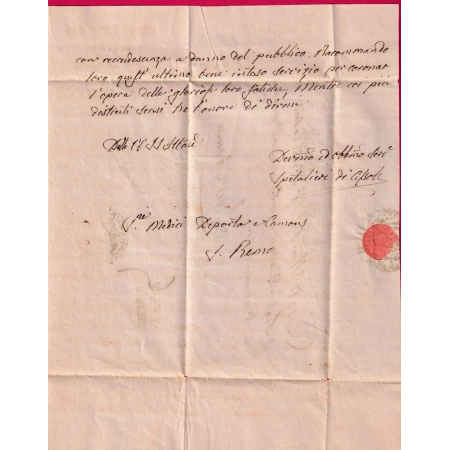 con recrudescenza a danno del pubblico. Raccomando
loro quest' ultimo bene inteso servizio per coronar
l'opera delle gloriose loro fatiche, mentre coi più
distinti sensi ho l'onore di dirmi
Delle
Devmo ed obbmo Serv.e
Spitalieri di Cessole
S.ri Medici Deporta e Lamons
S. Remo